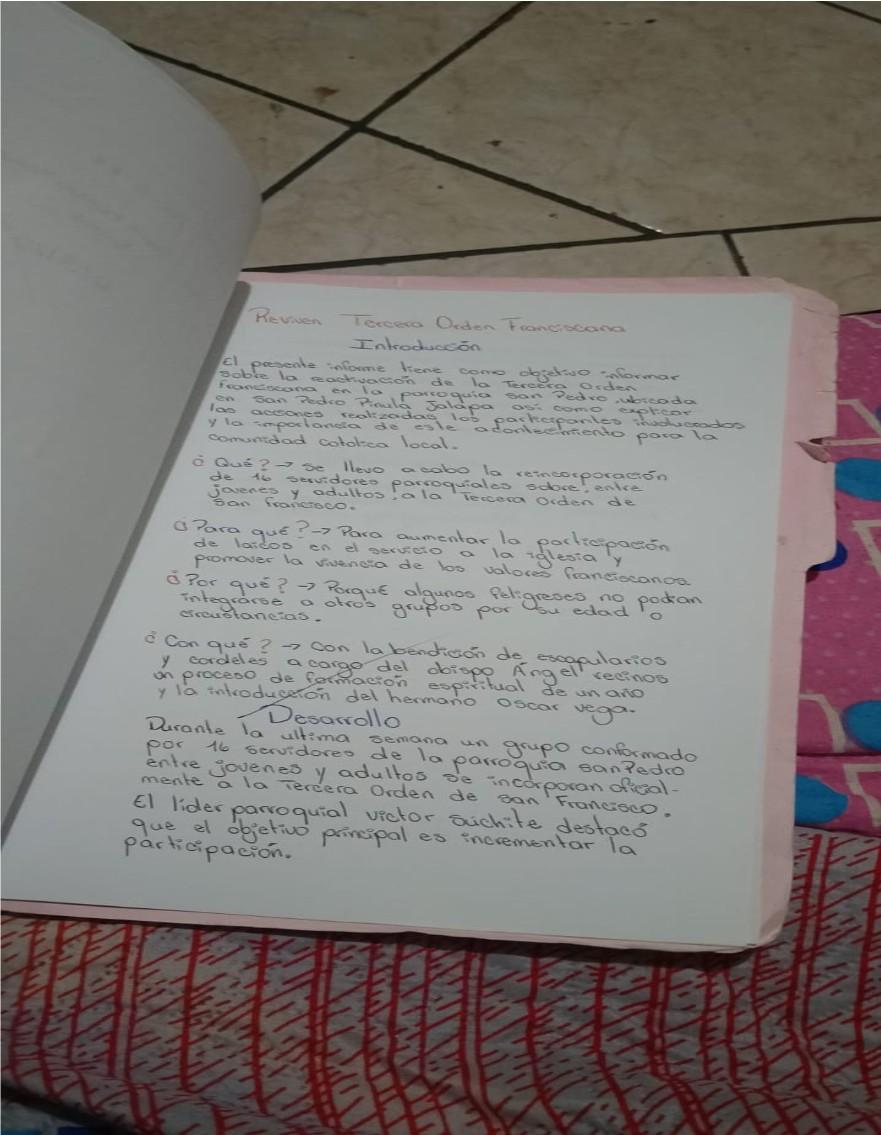 Reviven Tercera Orden Franciscana
Introducción
El presente informe tiene como objetivo informar
sobre la reactivación de la Tercera Orden
Franciscana en la parroquia san Pedro, ubicada
en San Pedro Pinula Jalapa así como explicar
las acciones realizadas los participantes involucrados
y la importancia de este acontecimiento para la
comunidad catolica local.
¿Qué? → se llevo acabo la reincorporación
de 16 servidores parroquiales sobre, entre
jovenes y adultos, a la Tercera Orden de
san francisco.
¿Para qué? → Para aumentar la participación
de laicos en el servicio a la iglesia y
promover la vivencia de los valores franciscanos
¿Por qué? → Porqué algunos feligreses no podian
integrarse a otros grupos por su edad o
circustancias.
¿Con qué? → con la bendición de escapularios
y cordeles a cargo del obispo Ángel recinos
un proceso de formación espiritual de un año
y la introducción del hermano oscar vega.
Desarrollo
Durante la ultima semana un grupo conformado
por 16 servidores de la parroquia san Pedro
entre jovenes y adultos se incorporan oficial-
mente a la Tercera Orden de san Francisco.
El lider parroquial victor suchite destacó
que el objetivo principal es incrementar la
participación.